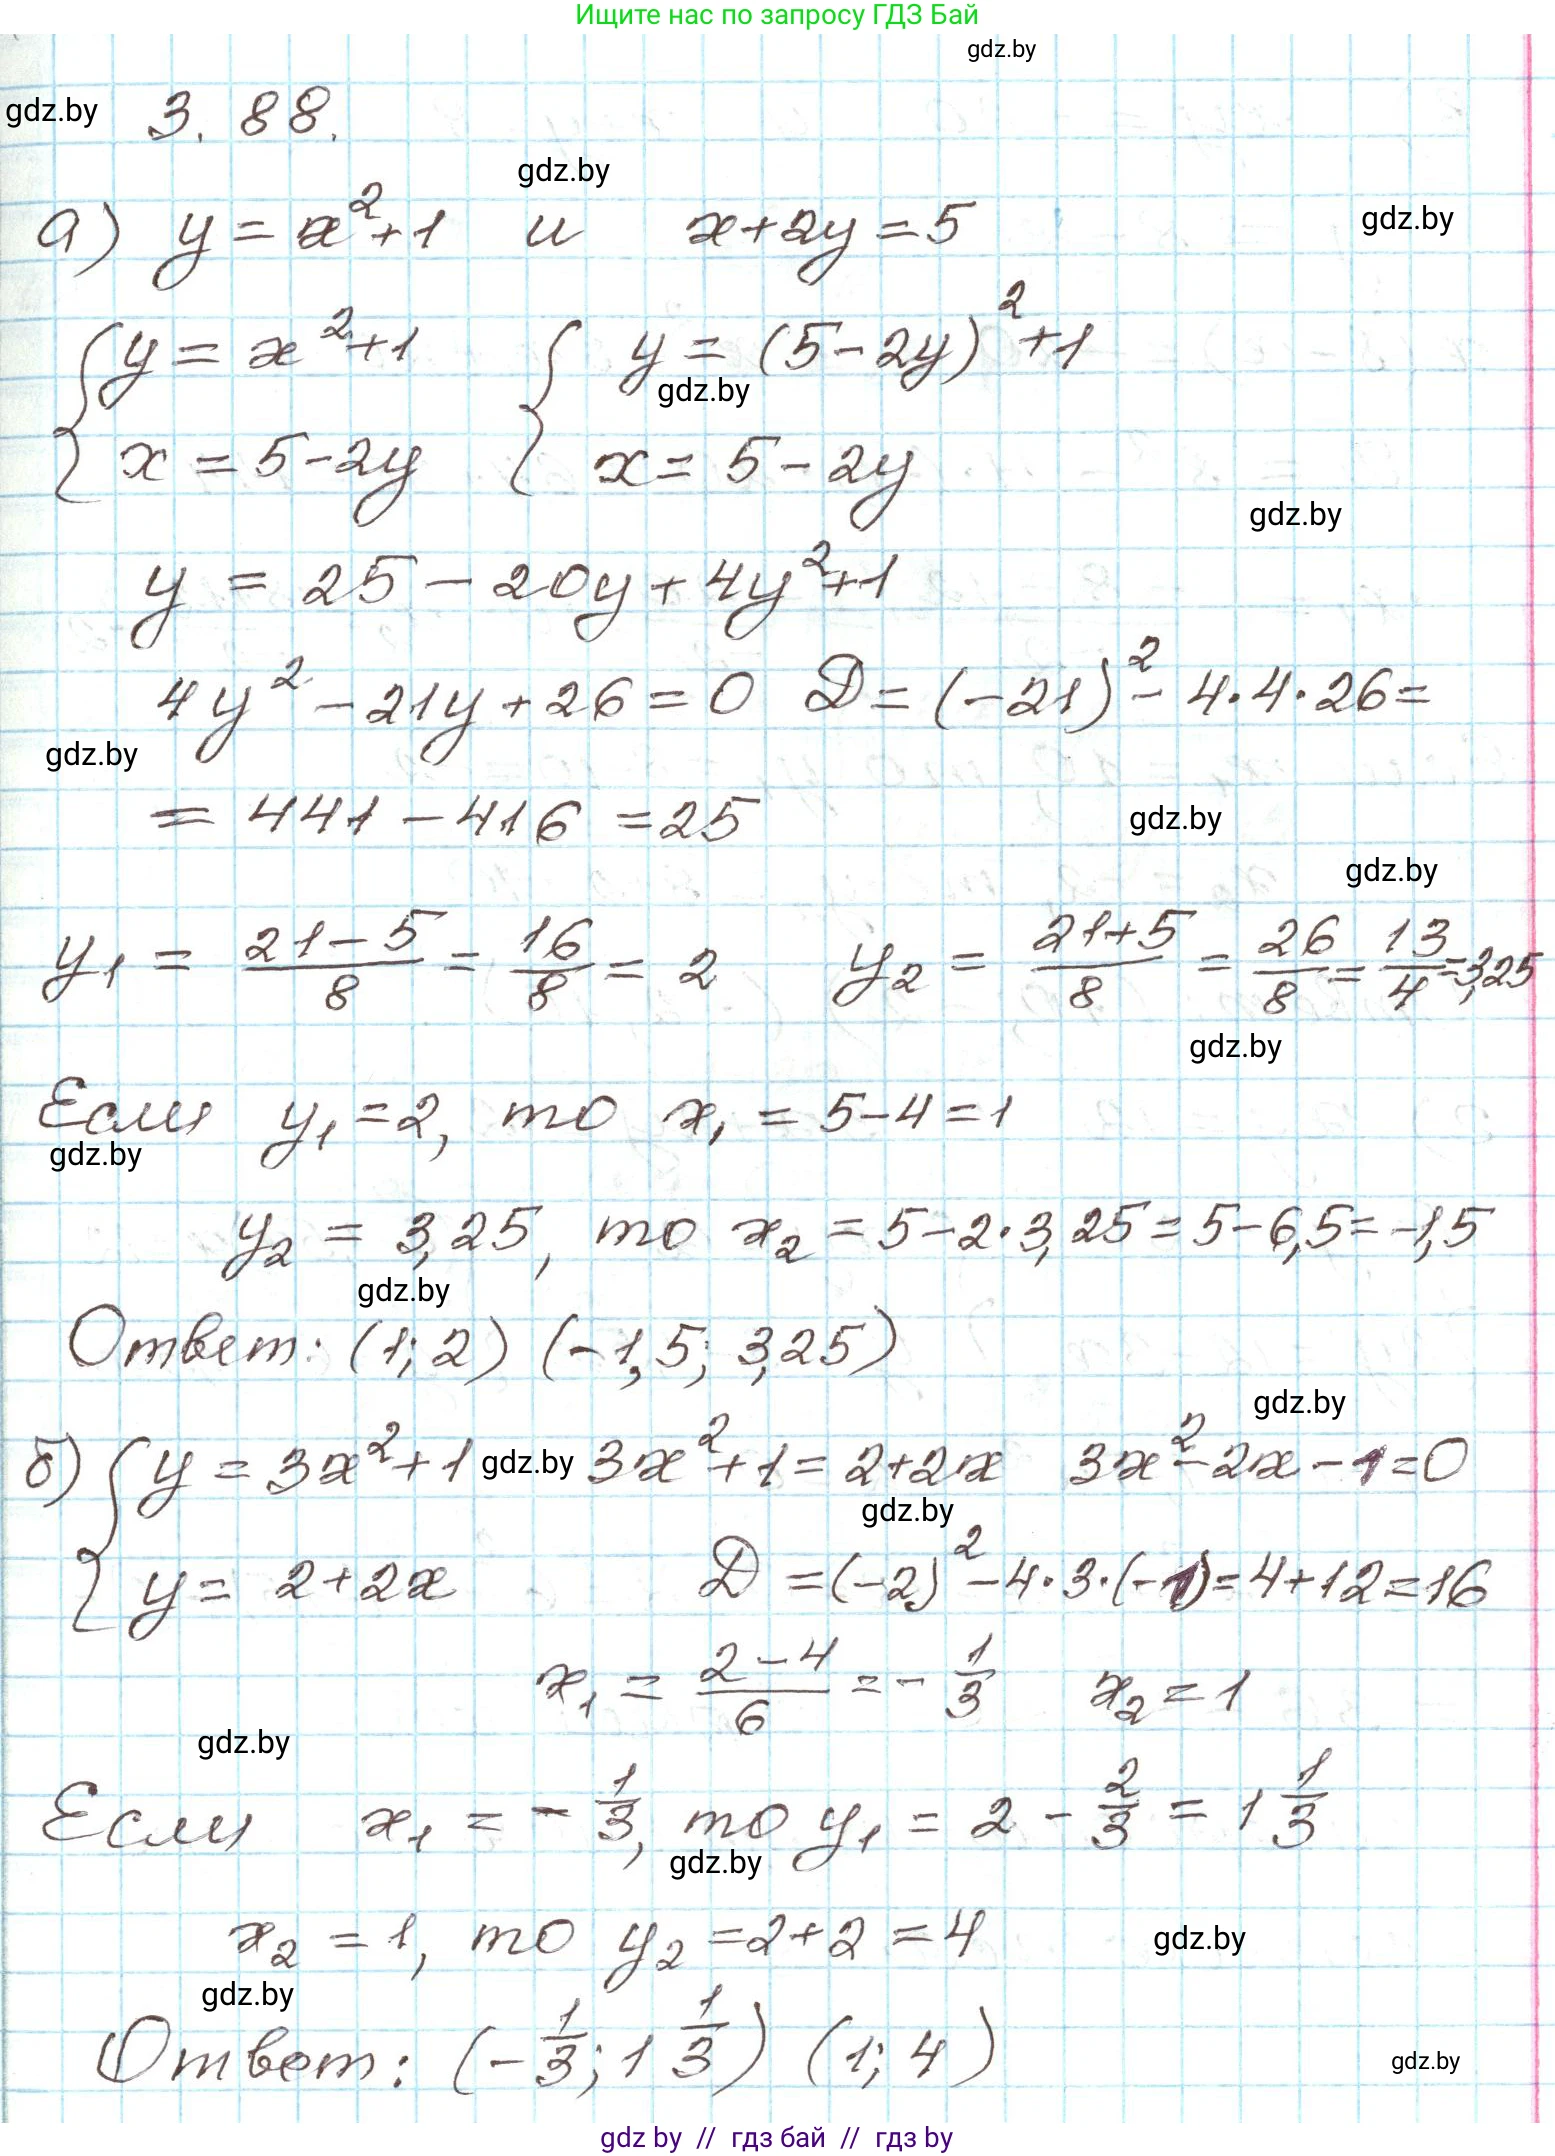 Ищите нас по запросу ГДЗ Бай
gdz.by
gdz.by 3.88.
gdz.by
а) y = x²+1 и x+2y=5 gdz.by
{ y = x²+1 { y = (5-2y)²+1
gdz.by
x = 5-2y x = 5-2y
gdz.by
y = 25 - 20y + 4y²+1
4y² - 21y + 26 = 0 Д = (-21)² - 4·4·26 =
gdz.by
= 441 - 416 = 25 gdz.by
gdz.by
y₁ = (21-5)/8 = 16/8 = 2 y₂ = (21+5)/8 = 26/8 = 13/4 = 3,25
gdz.by
Если y₁ = 2, то x₁ = 5-4 = 1
gdz.by
y₂ = 3,25, то x₂ = 5-2·3,25 = 5-6,5 = -1,5
gdz.by
Ответ: (1; 2) (-1,5; 3,25)
gdz.by
б) { y = 3x²+1 gdz.by 3x²+1 = 2+2x 3x²-2x-1=0
gdz.by
y = 2+2x Д = (-2)² - 4·3·(-1) = 4+12 = 16
x₁ = (2-4)/6 = - 1/3 x₂ = 1
gdz.by
Если x₁ = - 1/3, то y₁ = 2 - 2/3 = 1 1/3
gdz.by
x₂ = 1, то y₂ = 2+2 = 4 gdz.by
gdz.by
Ответ: (- 1/3; 1 1/3) (1; 4) gdz.by
gdz by // гдз бай // гдз by